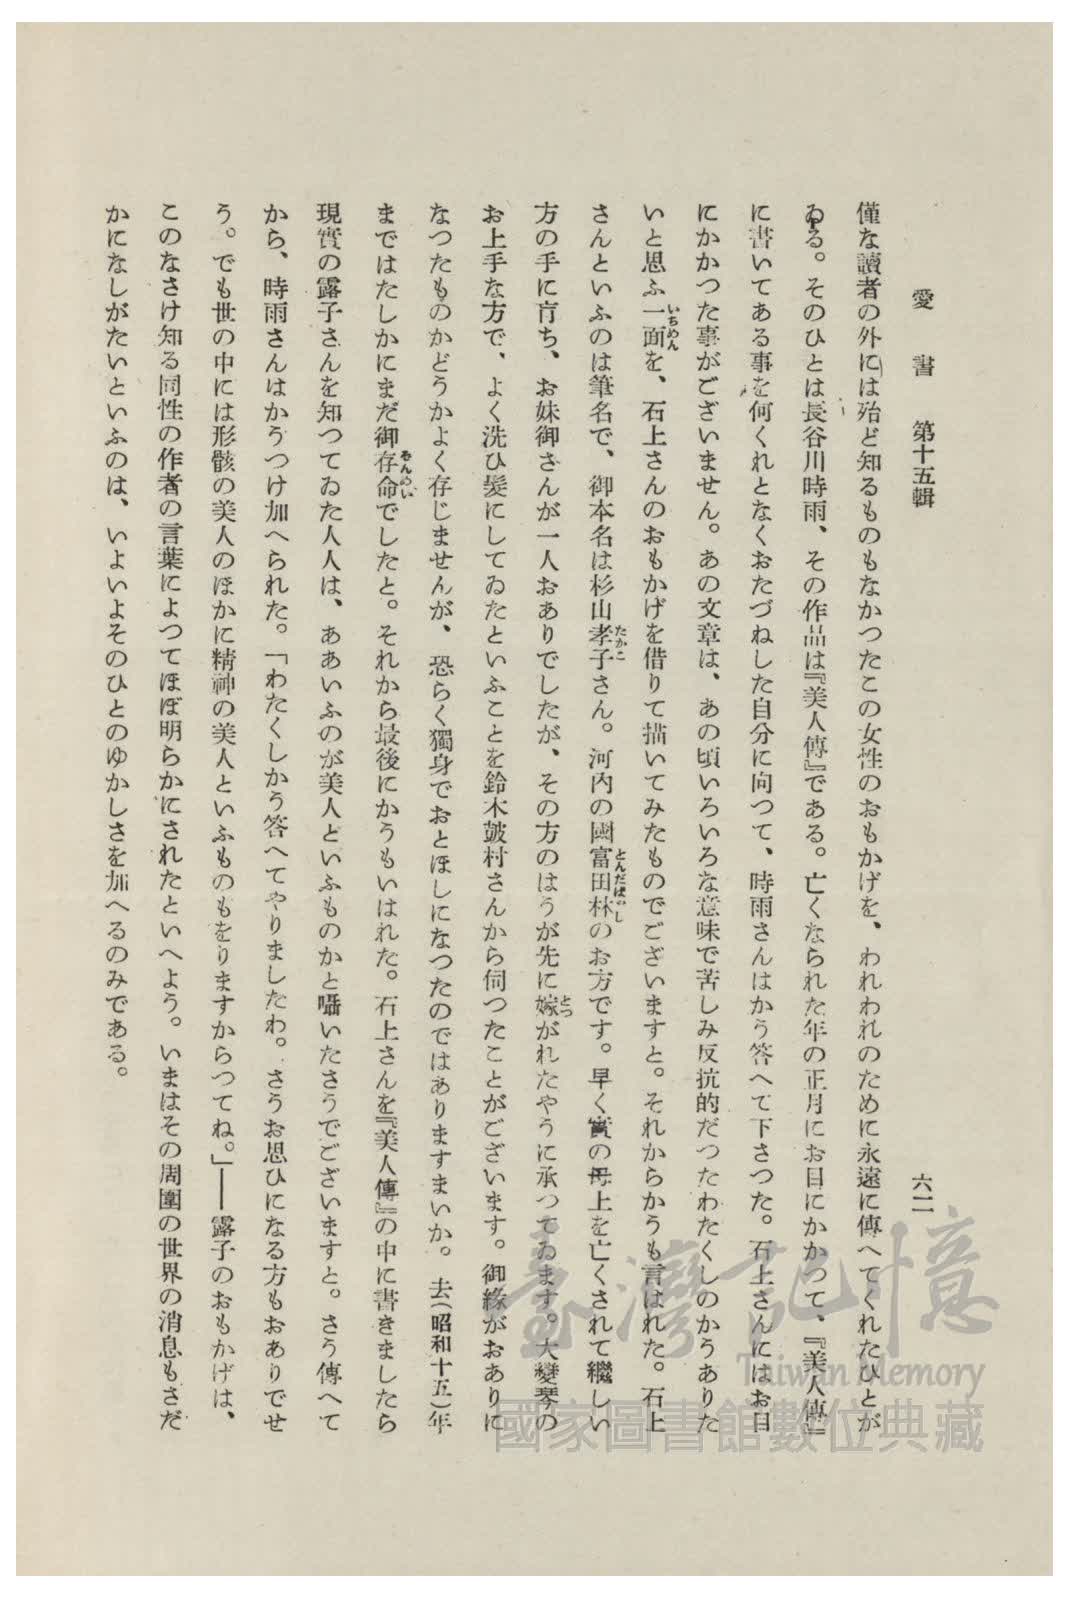 愛書　第十五輯
六二
僅な讀者の外には殆ど知るものもなかつたこの女性のおもかげを、われわれのために永遠に傳へてくれたひとが
ゐる。そのひとは長谷川時雨、その作品は『美人傳』である。亡くなられた年の正月にお目にかかつて、『美人傳』
に書いてある事を何くれとなくおたづねした自分に向つて、時雨さんはかう答へて下さつた。石上さんにはお目
にかかつた事がございません。あの文章は、あの頃いろいろな意味で苦しみ反抗的だつたわたくしのかうありた
いと思ふ一面を、石上さんのおもかげを借りて描いてみたものでございますと。それからかうも言はれた。石上
さんといふのは筆名で、御本名は杉山孝子さん。河内の國富田林のお方です。早く實の母上を亡くされて繼しい
方の手に育ち、お妹御さんが一人おありでしたが、その方のはうが先に嫁がれたやうに承つてゐます。大變琴の
お上手な方で、よく洗ひ髮にしてゐたといふことを鈴木鼓村さんから伺つたことがございます。御緣がおありに
なつたものかどうかよく存じませんが、恐らく獨身でおとほしになつたのではありますまいか。去(昭和十五)年
まではたしかにまだ御存命でしたと。それから最後にかうもいはれた。石上さんを『美人傳』の中に書きましたら
現實の露子さんを知つてゐた人人は、ああいふのが美人といふものかと囁いたさうでございますと。さう傳へて
から、時雨さんはかうつけ加へられた。「わたくしかう答へてやりましたわ。さうお思ひになる方もおありでせ
う。でも世の中には形骸の美人のほかに精神の美人といふものもをりますからつてね。」――露子のおもかげは、
このなさけ知る同性の作者の言葉によつてほぼ明らかにされたといへよう。いまはその周圍の世界の消息もさだ
かになしがたいといふのは、いよいよそのひとのゆかしさを加へるのみである。
いちめん
たかこ
とんだばやし
とつ
ぞんめい
臺灣記憶
Taiwan Memory
國家圖書館數位典藏